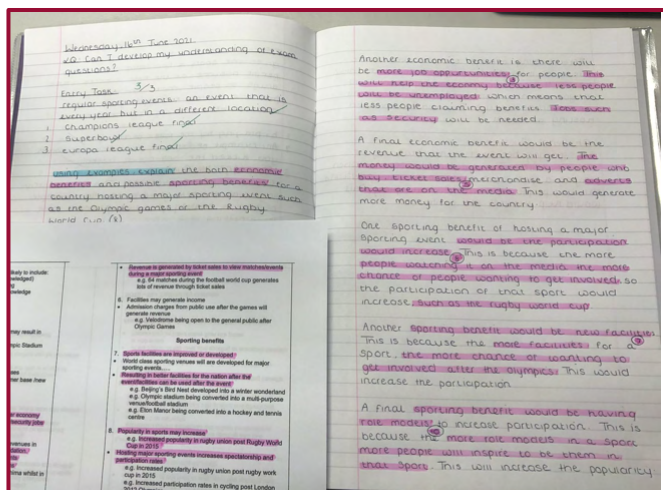 Wednesday 16th June 2021
KQ: Can I develop my understanding of exam
questions?
Entry Task 3/3
regular sporting events: an event that is
every year but in a different location
1 Champions league final
2 Superbowl
3 europa league final
using examples explain the both economic
benefits and possible sporting benefits for a
country hosting a major sporting event such
as the Olympic games or the Rugby
World Cup (8)
likely to include:
may result in
mpic Stadium
l economy
ecurity jobs
venues in
• Revenue is generated by ticket sales to view matches/events
during a major sporting event
e.g. 64 matches during the football world cup generates
lots of revenue through ticket sales
6. Facilities may generate income
• Admission charges from public use after the games will
generate revenue
e.g. Velodrome being open to the general public after
Olympic Games
Sporting benefits
7. Sports facilities are improved or developed
• World class sporting venues will are developed for major
sporting events
• Resulting in better facilities for the nation after the
event/facilities can be used after the event
e.g. Beijing's Bird Nest developed into a winter wonderland
e.g. Olympic stadium being converted into a multi-purpose
venue/football stadium
e.g. Eton Manor being converted into a hockey and tennis
centre
8. Popularity in sports may increase
e.g. Increased popularity in rugby union post Rugby World
Cup in 2015
• Hosting major sporting events increases spectatorship and
participation rates
e.g. Increased popularity in rugby union post rugby work
cup in 2015
e.g. Increased participation rates in cycling post London
Another economic benefit is there will
be more job opportunities for people. This
will help the economy because less people
will be unemployed which means that
less people claiming benefits. Jobs such
as security will be needed.
A final economic benefit would be the
revenue that the event will get. The
money would be generated by people who
buy ticket sales, merchandise and adverts
that are on the media. This would generate
more money for the country
One sporting benefit of hosting a major
sporting event would be the participation
would increase. This is because the more
people watching it on the media the more
chance of people wanting to get involved so
the participation of that sport would
increase, such as the rugby world cup
Another sporting benefit would be new facilities.
This is because the more facilities for a
sport, the more chance of wanting to
get involved after the olympics. This would
increase the participation.
A final sporting benefit would be having
role models to increase participation. This is
because the more role models in a sport
more people will inspire to be them in
that sport. This will increase the popularity